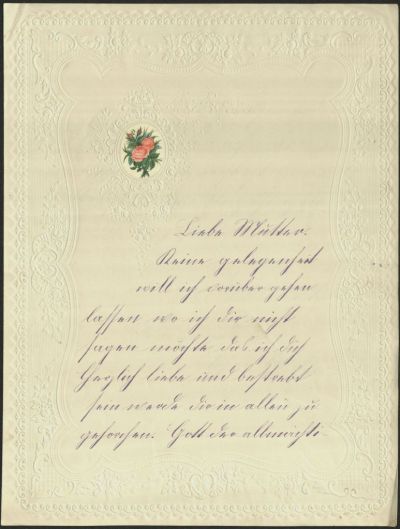 Liebe Mutter.
Keine gelegenheit
will ich vorüber gehen
lassen wo ich dir nicht
sagen möchte das ich dich
Herzlich liebe und bestrebt
sein werde dir in allen zu
gehorchen. Gott der allmächti-